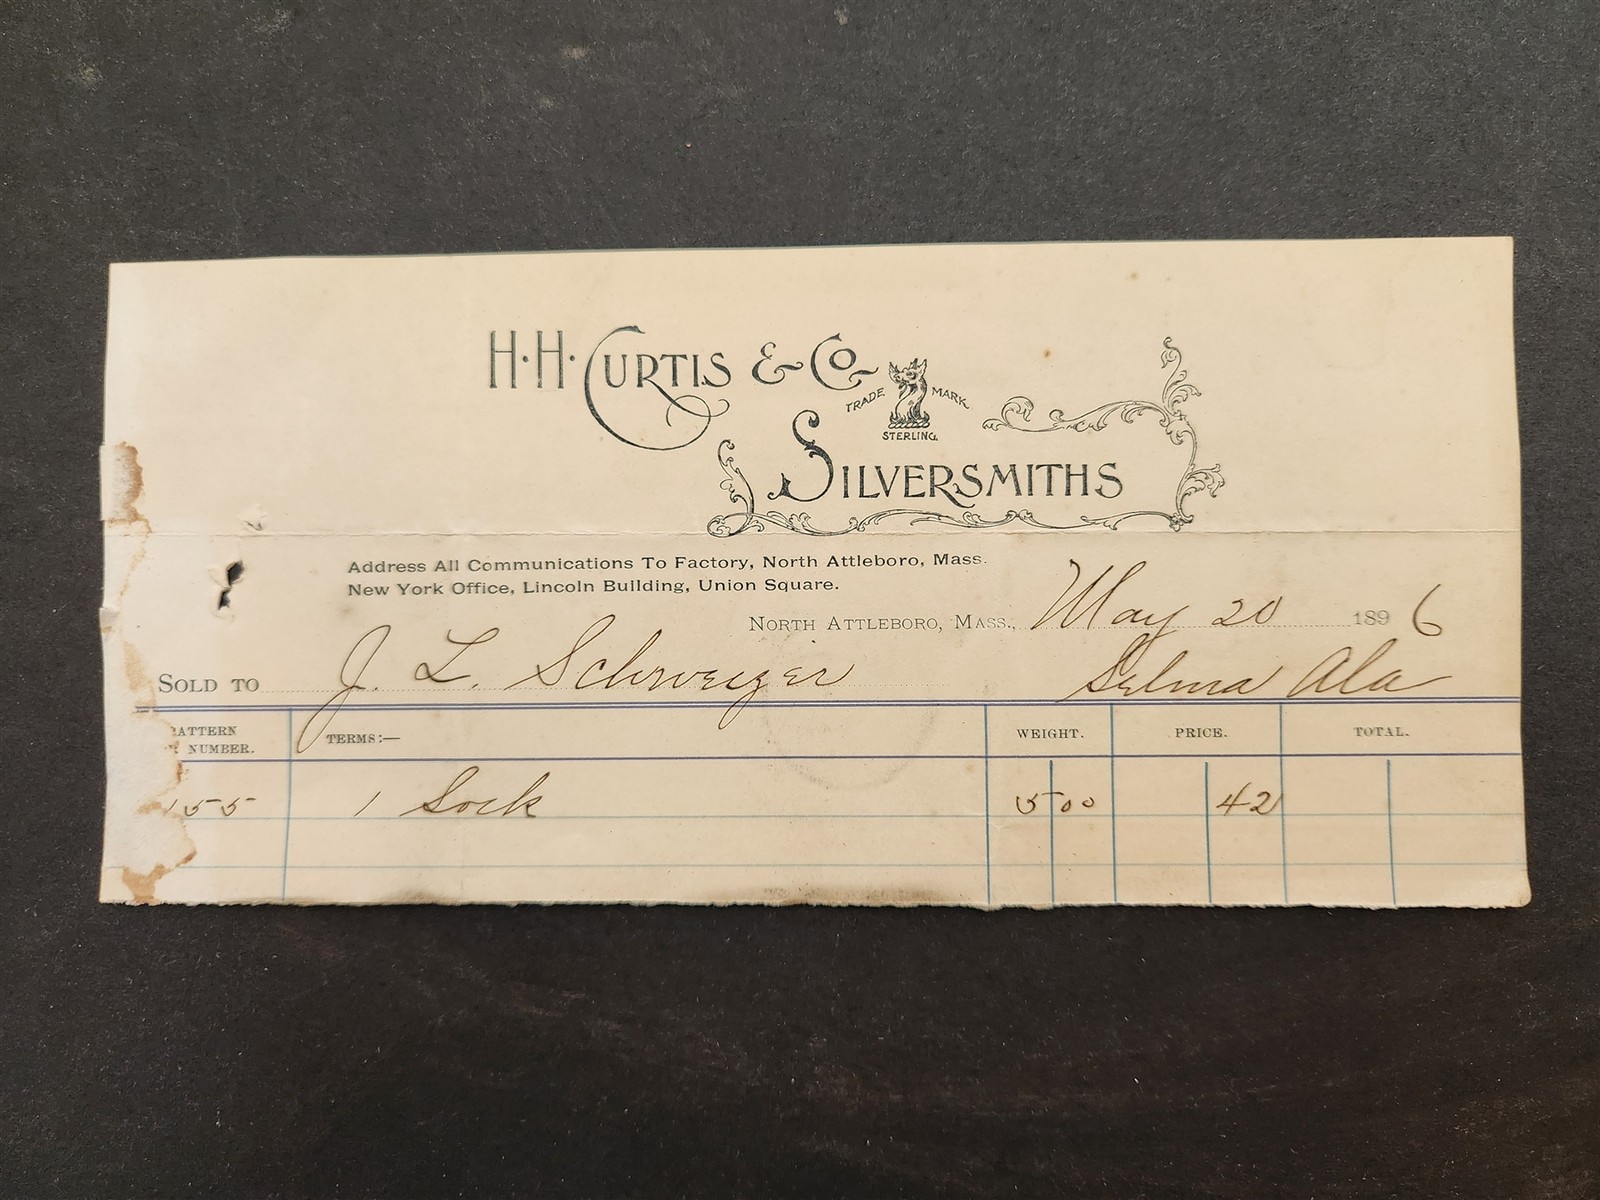 H. H. Curtis & Co.
TRADE MARK
STERLING
SILVERSMITHS
Address All Communications To Factory, North Attleboro, Mass.
New York Office, Lincoln Building, Union Square.
NORTH ATTLEBORO, MASS., May 20 1896
SOLD TO J. L. Schweizer Selma Ala
NUMBER. TERMS:— WEIGHT. PRICE. TOTAL.
155 1 Sock 5 00 42